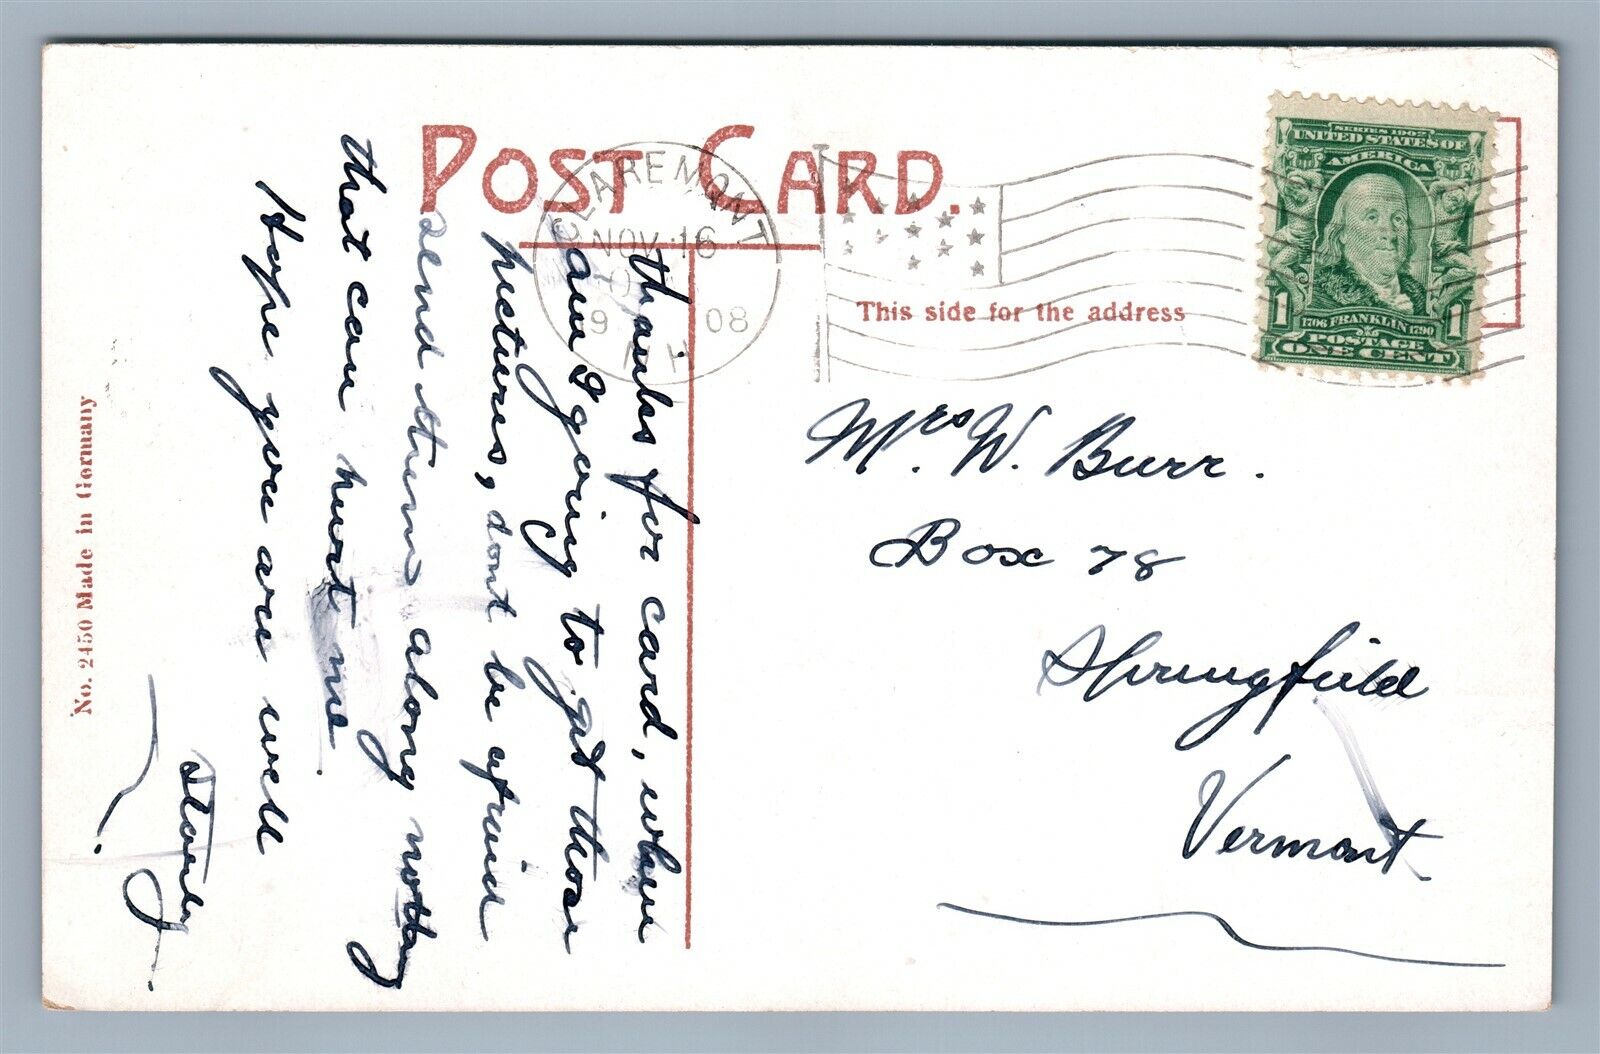 POST CARD.
CLAREMONT
NOV 16
9 08
N.H.
SERIES 1902
UNITED STATES OF
AMERICA
1706 FRANKLIN 1790
1 1
POSTAGE
ONE CENT
This side for the address
Mrs W. Burr.
Box 78
Springfield
Vermont
thanks for card, when
am I going to get those
pictures, dont be afraid
send them along nothing
that can hurt me.
Hope you are well
Stanley
No. 2450 Made in Germany